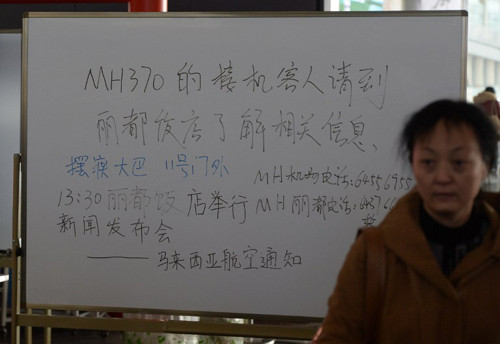 MH370的接机客人请到
丽都饭店了解相关信息
摆渡大巴 11号门外
MH机场电话:64556955
13:30丽都饭店举行
MH丽都电话:6437
新闻发布会
——马来西亚航空通知